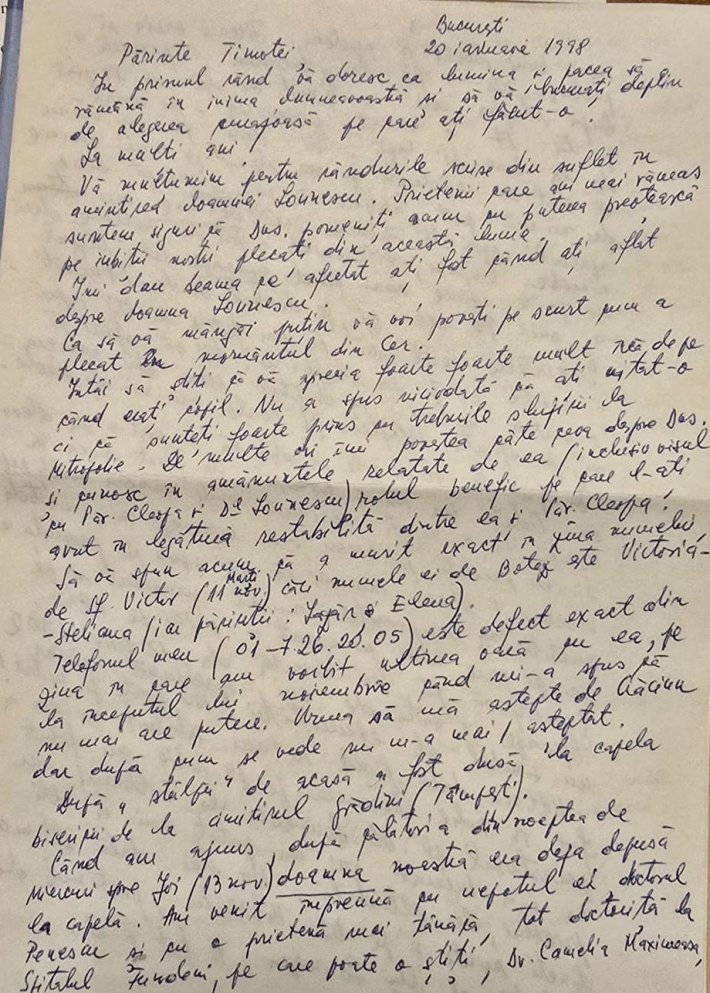 București
20 ianuarie 1998
Părinte Timotei
În primul rând vă doresc ca lumina și pacea să
rămână în inima dumneavoastră și să vă bucurați deplin
de alegerea curajoasă pe care ați făcut-o!
La mulți ani!
Vă mulțumim pentru rândurile scise din suflet în
amintirea doamnei Lovinescu. Prietenii care am mai rămas
suntem siguri că Dvs. pomeniți acum cu puterea preoțească
pe iubiții noștri plecați din această lume.
Îmi dau seama ce afectat ați fost când ați aflat
despre doamna Lovinescu.
Ca să vă mângâi puțin vă voi povesti pe scurt cum a
plecat mormântul din Cer.
Întâi să știți că vă aprecia foarte foarte mult încă de pe
când erați copil. Nu a spus niciodată că ați uitat-o
ci că sunteți foarte prins cu treburile slujirii la
Mitropolie. De multe ori îmi povestea câte ceva despre Dvs.
și cunosc în amănuntele relatate de ea (inclusiv visul
cu Păr. Cleopa și Dl Lovinescu) rolul benefic pe care l-ați
avut în legătura restabilită dintre ea și Păr. Cleopa!
Să vă spun acum că a murit exact în ziua numelui
de Sf. Victor (11 nov.) Marți căci numele ei de Botez este Victoria-
-Steliana (iar părinții: Lazăr și Elena).
Telefonul meu (01-7.26.20.05) este defect exact din
ziua în care am vorbit ultima oară cu ea, pe
la începutul lui noiembrie când mi-a spus că
nu mai are putere. Urma să mă aștepte de Crăciun
dar după cum se vede nu m-a mai așteptat.
După "stâlpii" de acasă a fost dusă la capela
bisericii de la cimitirul grădinii
Când am ajuns, după călătoria din noaptea de
Miercuri spre Joi (13 nov.) doamna noastră era deja depusă
la capelă. Am venit împreună cu nepotul ei doctorul
Penescu și cu o prietenă mai tânără, tot doctoriță la
Spitalul Fundeni, pe care poate o știți, Dr. Camelia